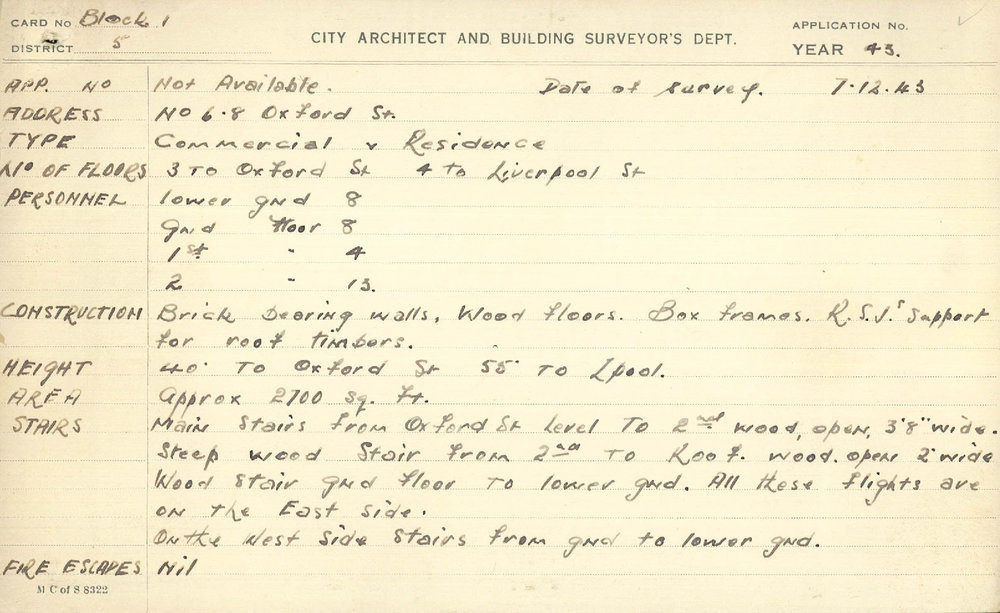 CARD No Block 1
DISTRICT 5
CITY ARCHITECT AND BUILDING SURVEYOR'S DEPT.
APPLICATION No.
YEAR 43.
APP. NO Not Available. Date of survey. 7.12.43
ADDRESS No 6.8 Oxford St.
TYPE Commercial & Residence
No OF FLOORS 3 To Oxford St 4 To Liverpool St
PERSONNEL lower gnd 8
gnd floor 8
1st " 4
2 " 13.
CONSTRUCTION Brick bearing walls, Wood floors. Box frames. R.S.J's support
for roof timbers.
HEIGHT 40' To Oxford St 55' To Lpool.
AREA Approx 2700 sq. ft.
STAIRS Main Stairs from Oxford St Level To 2nd wood, open, 3'8" wide.
Steep wood Stair from 2nd to Roof. wood. open 2' wide
Wood stair gnd floor To lower gnd. All these flights are
on the East side.
On the West side stairs from gnd to lower gnd.
FIRE ESCAPES Nil
M C of S 8322